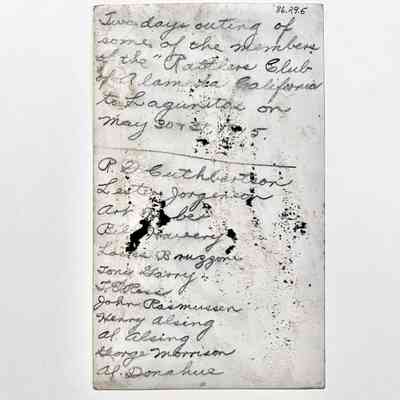 86.29.6
Two days outing of
some of the members
of the "Rattlers Club
of Alameda California
to Lagunitas on
May 30 + 31 5
R. D. Cuthbertson
Lester Jorgenson
Art
Bill
Louis Bruzzone
Tony Garry
Ross
John Rasmussen
Henry Alsing
Al. Alsing
George Morrison
Al. Donahue